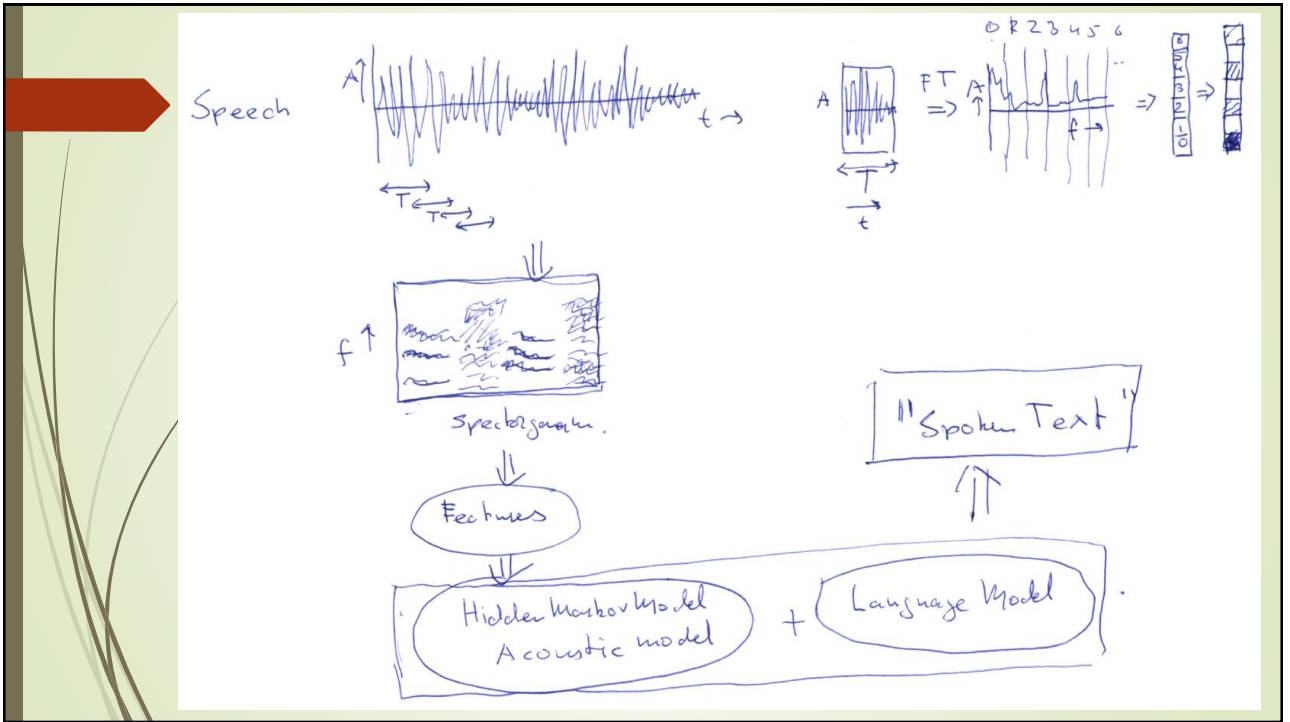 Speech
A
t
T
T
A
T
t
FT
A
0 1 2 3 4 5 6
f
6
5
4
3
2
1
0
f
Spectrogram.
Features
Hidden Markov Model
Acoustic model
+
Language Model
"Spoken Text"